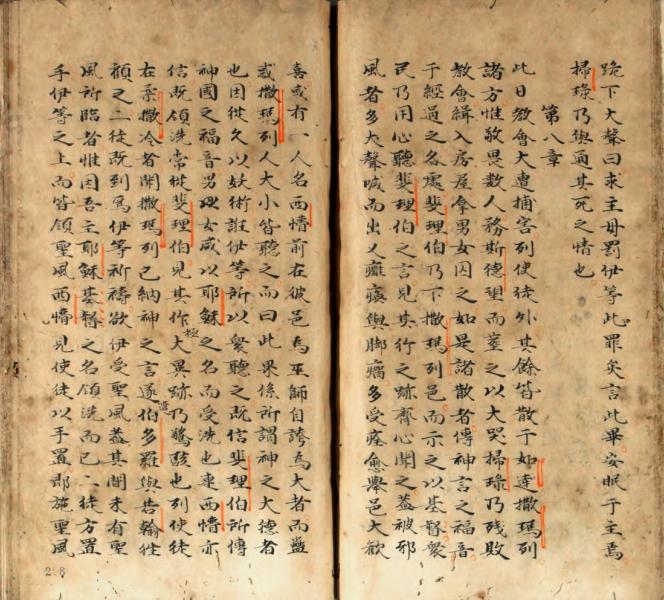 跪下大聲曰求主毋罰伊等此罪矣言此畢安眠于主焉
掃琭乃與通其死之情也
第八章
此日教會大遭捕害列使徒外其餘皆散于如達撒瑪列
諸方惟敬畏數人務斯德望而塟之以大哭掃琭乃残敗
教會緝入房屋拿男女囚之如是諸散者傳神言之福音
于經過之各處斐理伯乃下撒瑪列邑而示之以基督衆
民乃用心聽斐理伯之言見其行之跡齊心聞之葢被邪
風者多大聲喊而出又癱瘓與脚瘸多受痊愈舉邑大歡
喜或有一人名西慲前在彼邑為巫師自誇為大者而盡
或撒瑪列人大小皆聽之而曰此果係所謂神之大德者
也因徙久以妖術誑伊等所以衆聽之既信斐理伯所傳
神國之福音男及女咸以耶穌之名而受洗也東西慲亦
信既領洗常徙斐理伯見其作極大異跡乃驚駭也列使徒
在柔撒冷者聞撒瑪列已納神之言遂遣伯多羅與若翰徃
視之二徒既到為伊等祈禱欲伊受聖風葢其間未有聖
風所臨者惟因吾主耶穌基督之名領洗而已二徒方置
手伊等之上而皆領聖風西慲見使徒以手置即施聖風